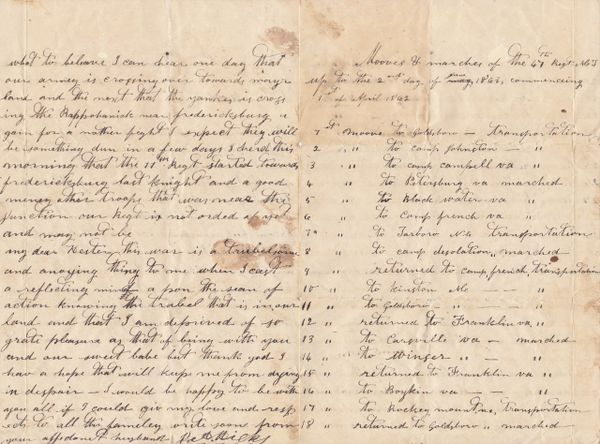 what to beleave I can hear one day that
our armey is crossing over towards mary
land and the next that the yankes is cross
ing the Rappohanick near fredericksburg a
gain for a nother fight I expect they will
be something dun in a few days I herd this
morning that the 11th Regt started towards
fredericksburg last knight and a good
meney other troops that was near the
junction our Regt is not orded of yet
and may not be
my dear Hester this war is a
and anoying thing to me when I cast
a reflecting mind a pon the sean of
action knowing the trabel that is in our
land and that I am deprived of so
grate pleasure as that of being with you
and our sweet babe but thank god I
hav a hope that will keep me from dying
in despair - I would be happy to be with
you all if I could giv my love and resp
ects to all the fameley write soon from
your affectionet husband Hicks
Mooves & marches of the 47th Regt N.C.T
up to the 2nd day of 1863, commencing
1st of April 1862
1st moove to Goldsboro - transportation
2 " to camp Johnston - "
3 " to camp campbell va "
4 " to Petersburg va marched
5 " to Black water va "
6 " to camp french va "
7 " to Tarboro N.C transportation
8 " to camp desolation " marched
9 " returned to camp french, transportation
10 " to Kinston Nc - "
11 " to Goldsboro - "
12 " returned to Franklin va "
13 " to Carsville va - marched
14 " to - "
15 " returned to Franklin va "
16 " to Boykin va - "
17 " to Rockey mount nc, Transportation
18 " returned to Goldsboro " marched